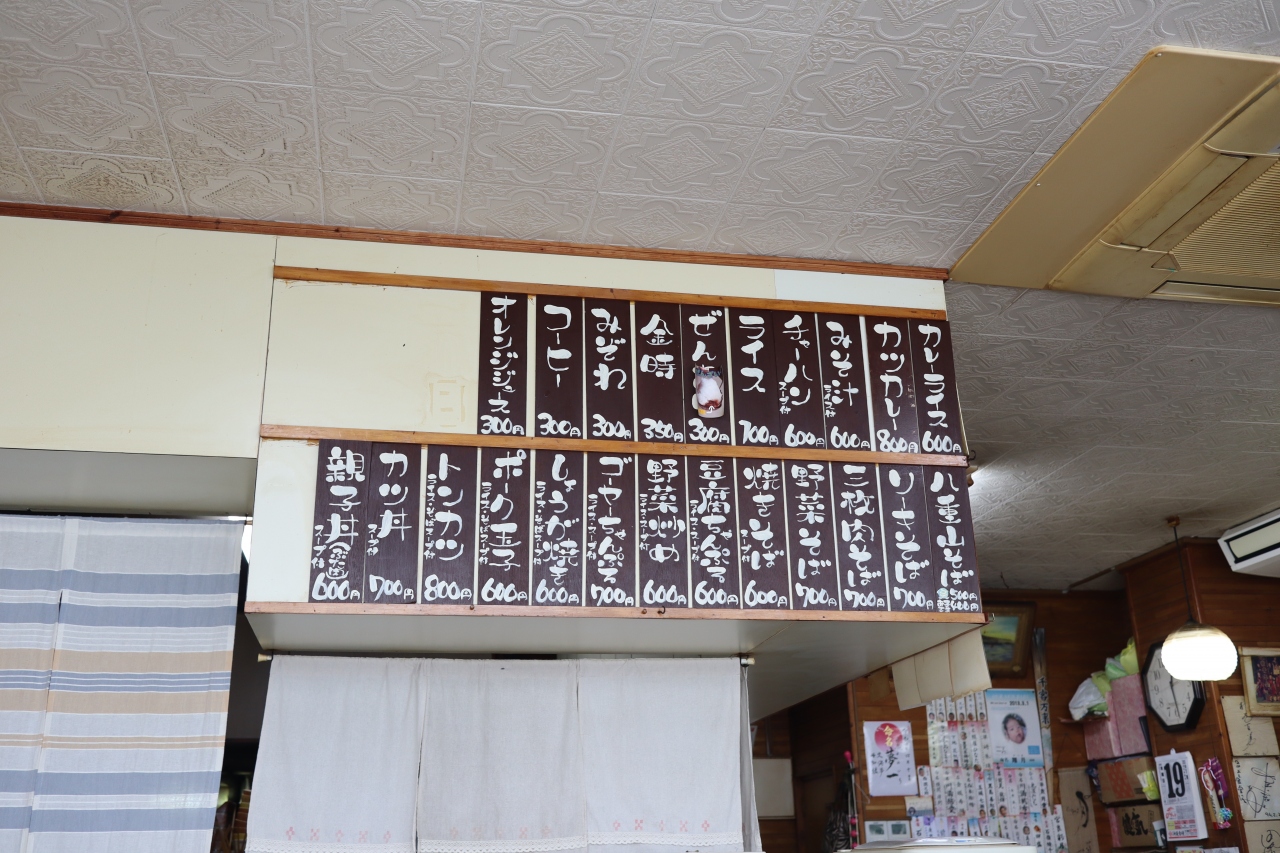 カレーライス 600円
カツカレー 800円
みそ汁 ライス付 600円
チャーハン スープ付 600円
ライス 700円
ぜん 300円
金時 350円
みぞれ 300円
コーヒー 300円
オレンジジュース 300円
八重山そば 500円 400円
ソーキそば 700円
三枚肉そば 700円
野菜そば 700円
焼きそば スープ付 600円
豆腐ちゃんぷる ライス・スープ付 600円
野菜炒め ライス・スープ付 600円
ゴーヤーちゃんぷる ライス・スープ付 700円
しょうが焼き ライス・そばスープ付 600円
ポーク玉子 ライス・そばスープ付 600円
トンカツ ライス・そばスープ付 800円
カツ丼 スープ付 700円
親子丼 スープ付 600円
命名
夢一
19